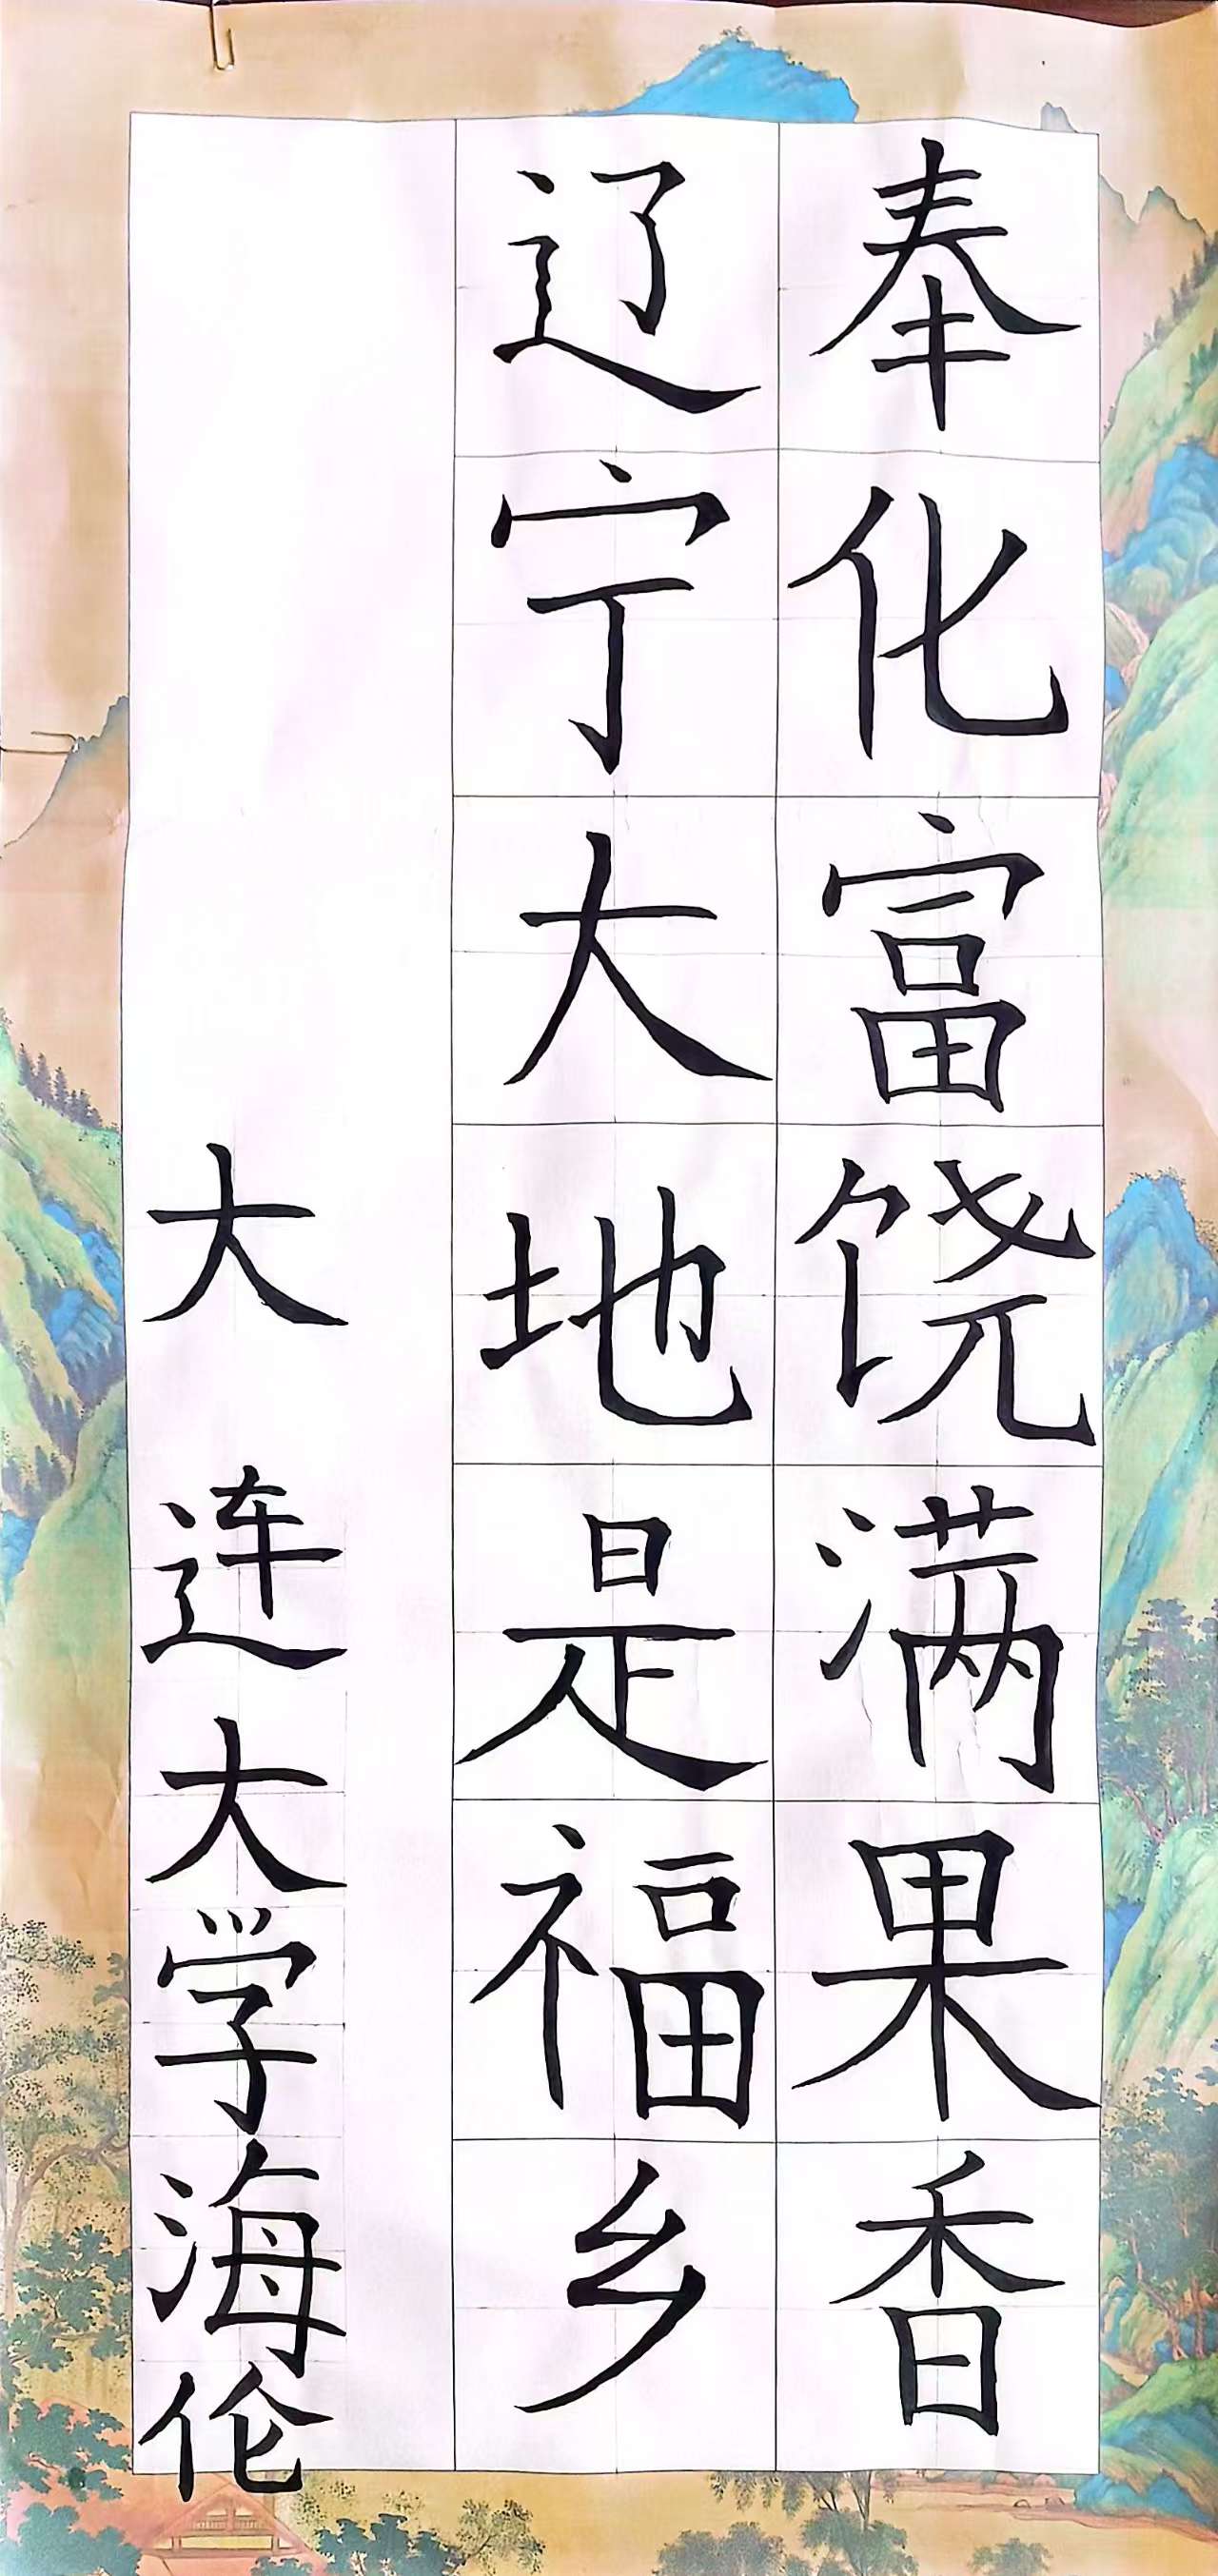 奉化富饶满果香
辽宁大地是福乡
大连大学海伦